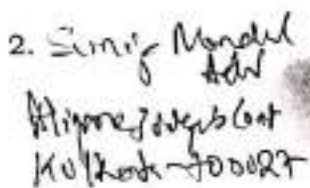 2. Simij Mondal
Adv
Alipore Judges Court
Kolkata-700027